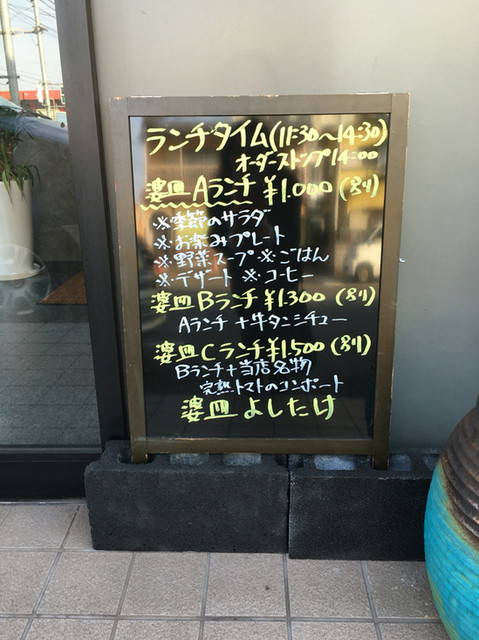 ランチタイム(11:30〜14:30)
オーダーストップ14:00
婆皿Aランチ ¥1.000(別)
※季節のサラダ
※お楽みプレート
※野菜スープ※ごはん
※デザート ※コーヒー
婆皿Bランチ¥1.300(別)
Aランチ+牛タンシチュー
婆皿Cランチ¥1.500(別)
Bランチ+当店名物
完熟トマトのコンポート
婆皿よしたけ